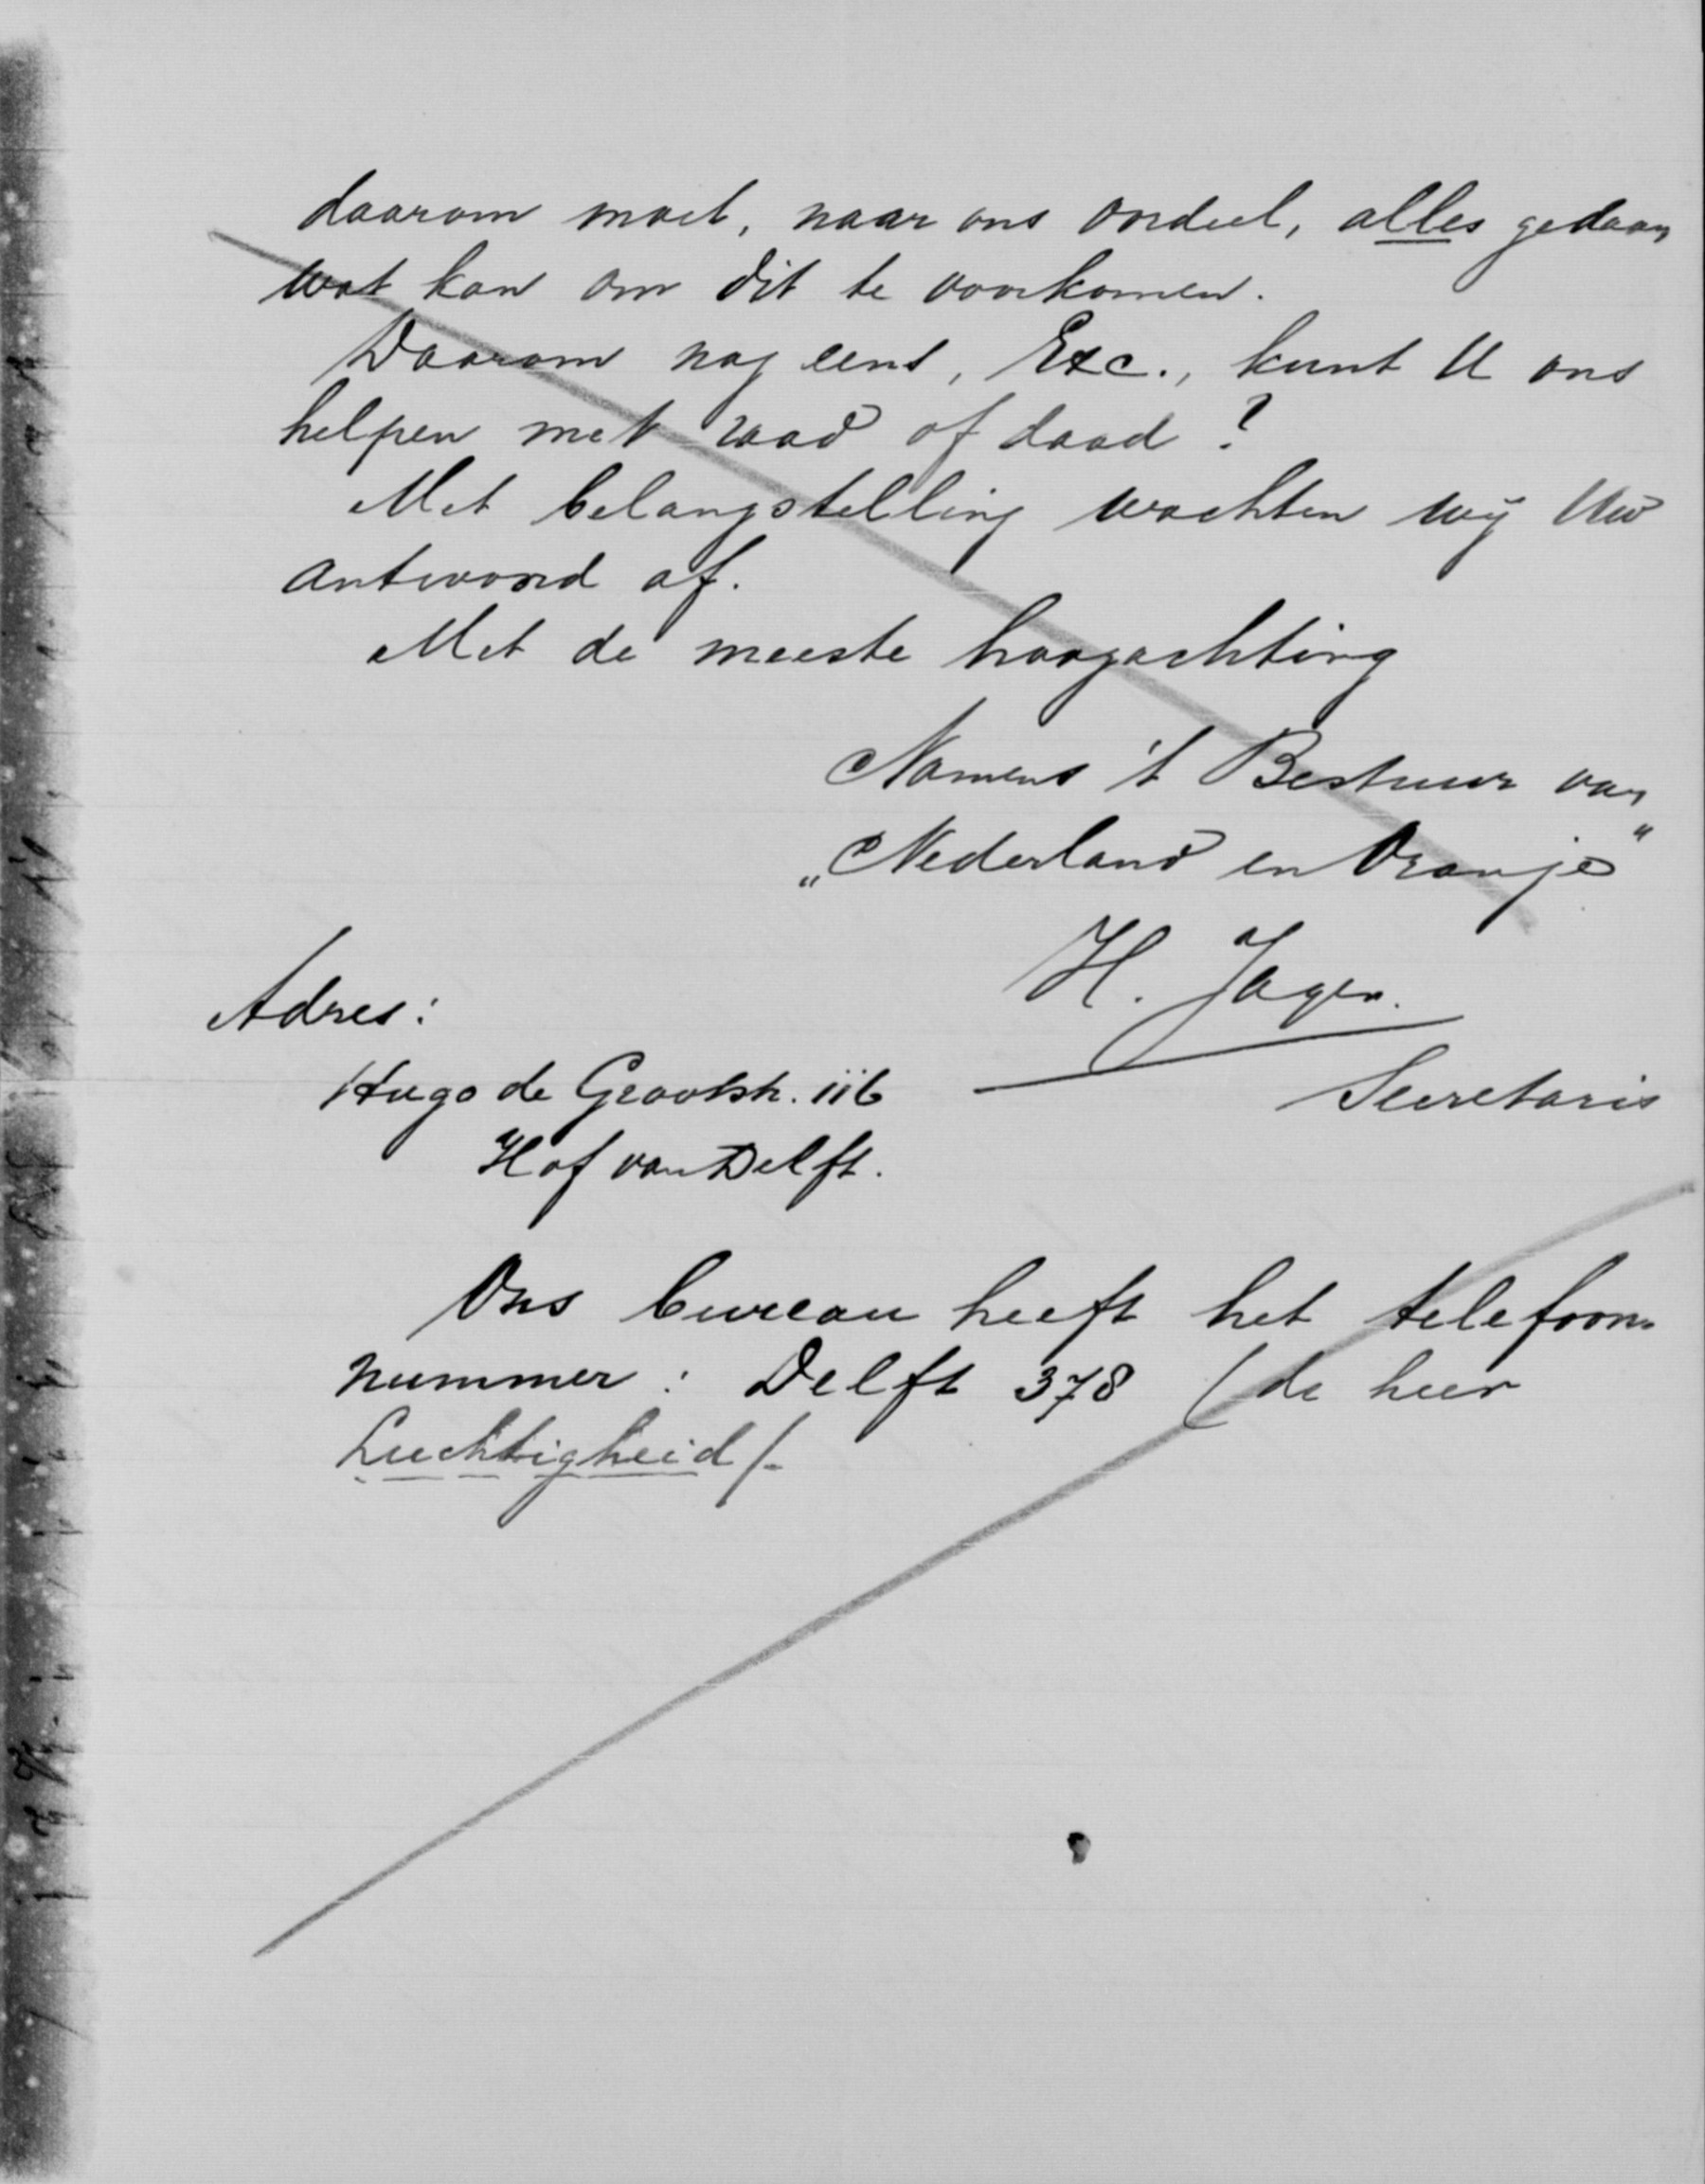 daarom moet, naar ons oordeel, alles gedaan
wat kan om dit te voorkomen.
Daarom nog eens, Exc., kunt U ons
helpen met raad of daad?
Met belangstelling wachten wij Uw
antwoord af.
Met de meeste hoogachting
Namens 't Bestuur van
„Nederland en Oranje"
H. Jager.
Secretaris
Adres:
Hugo de Grootstr. 116
Hof van Delft.
Ons bureau heeft het telefoon-
nummer: Delft 378 (de heer
Luchtigheid/.